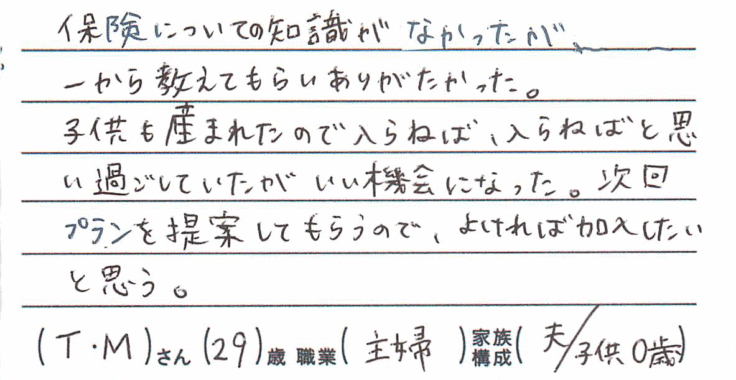 保険についての知識がなかったが、
一から教えてもらいありがたかった。
子供も産まれたので入らねば、入らねばと思
い過ごしていたがいい機会になった。次回
プランを提案してもらうので、よければ加入したい
と思う。
(T・M)さん(29)歳 職業(主婦)家族構成(夫/子供0歳)